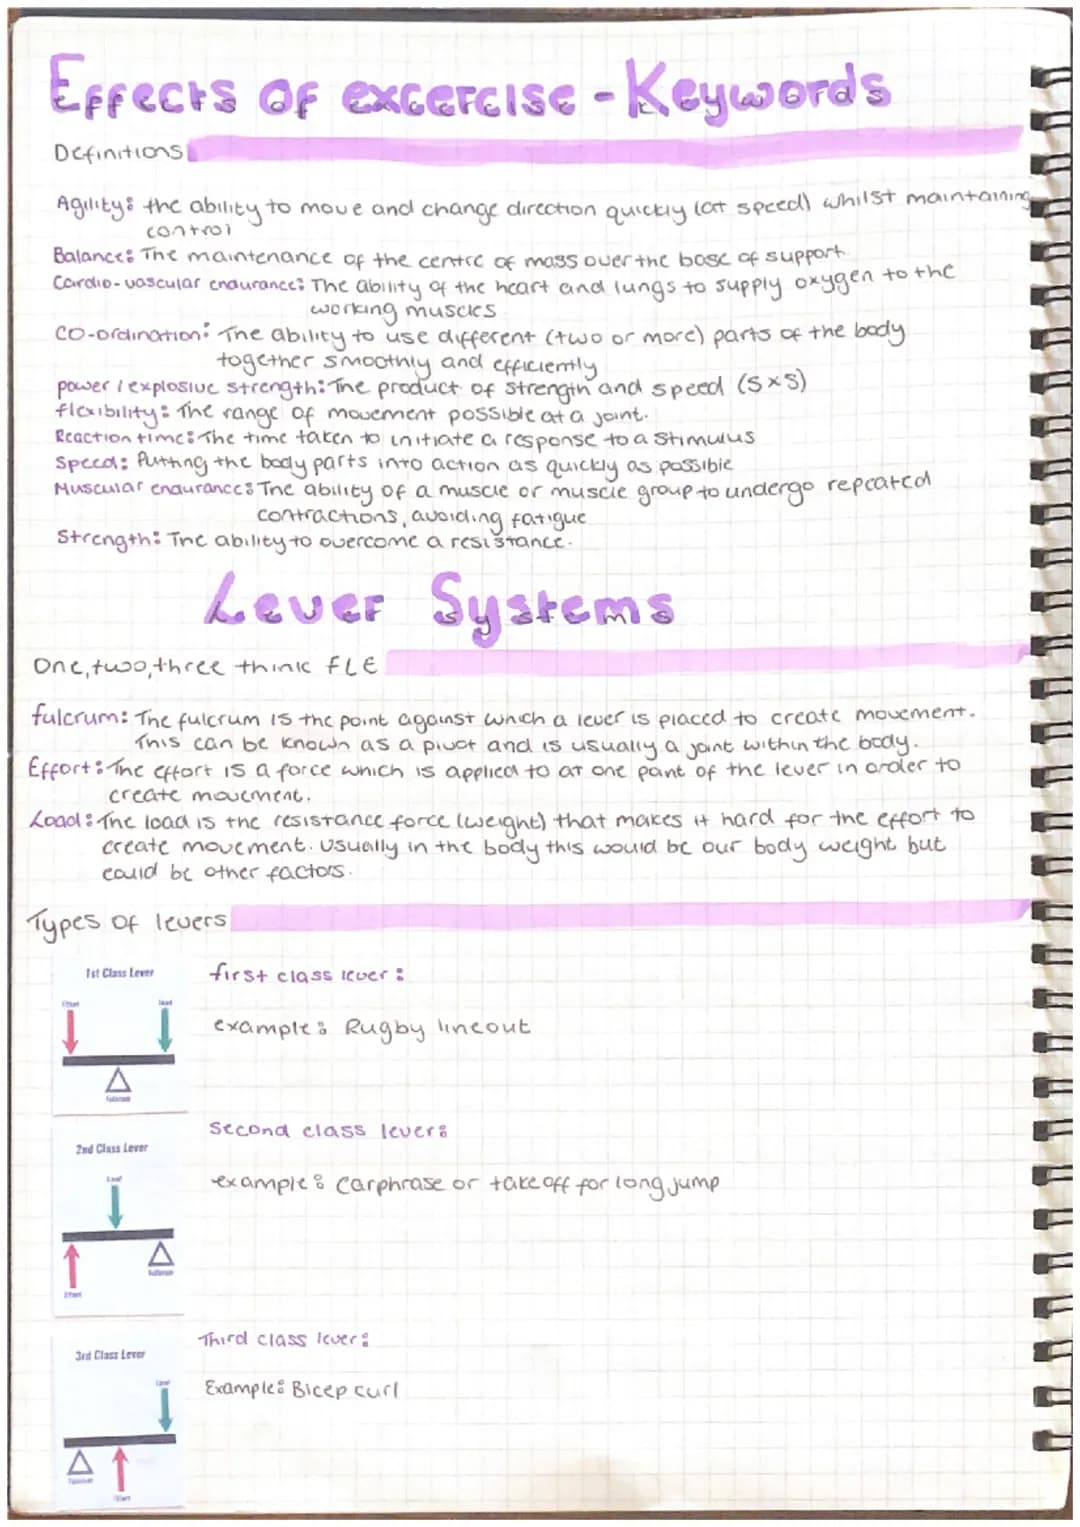 Effects of excercise - Keywords
Definitions
Agility: the ability to move and change direction quickly (at speed) whilst maintaining
control
Balance: The maintenance of the centre of mass over the base of support.
Cardio-vascular endurance: The ability of the heart and lungs to supply oxygen to the
working muscles
CO-ordination: The ability to use different (two or more) parts of the body
together smoothly and efficiently
power / explosive strength: The product of strength and speed (S×S)
flexibility: The range of movement possible at a joint.
Reaction time: The time taken to initiate a response to a stimulus
Speed: Putting the body parts into action as quickly as possible
Muscular endurance: The ability of a muscle or muscle group to undergo repeated
contractions, avoiding fatigue
Strength: The ability to overcome a resistance.
Lever Systems
One, two, three think FLE
fulcrum: The fulcrum is the point against which a lever is placed to create movement.
This can be known as a pivot and is usually a joint within the body.
Effort: The effort is a force which is applied to at one point of the lever in order to
create movement.
Load: The load is the resistance force (weight) that makes it hard for the effort to
create movement. Usually in the body this would be our body weight but
could be other factors.
Types of levers
1st Class Lever
Effort
Load
Fulcrum
first class lever:
example: Rugby lineout
2nd Class Lever
Load
Fulcrum
Effort
Second class lever:
example: Carphrase or take off for long jump
3rd Class Lever
Load
Fulcrum
Effort
Third class lever:
Example: Bicep curl